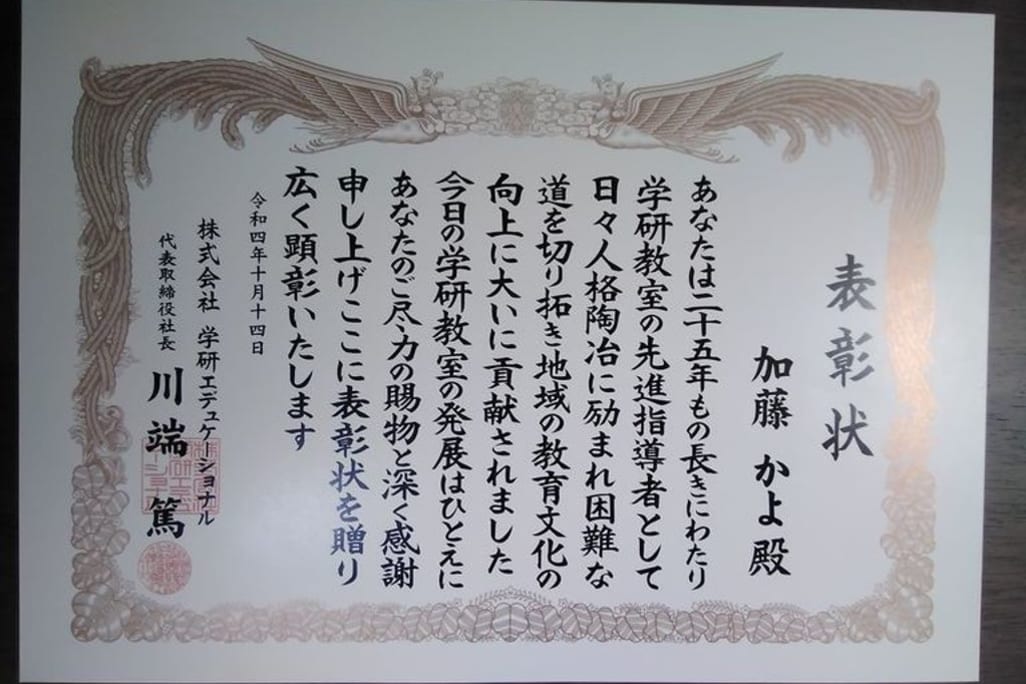 表彰状
加藤 かよ 殿
あなたは二十五年もの長きにわたり
学研教室の先進指導者として
日々人格陶冶に励まれ困難な
道を切り拓き地域の教育文化の
向上に大いに貢献されました
今日の学研教室の発展はひとえに
あなたのご尽力の賜物と深く感謝
申し上げここに表彰状を贈り
広く顕彰いたします
令和四年十月十四日
株式会社 学研エデュケーショナル
代表取締役社長 川端 篤